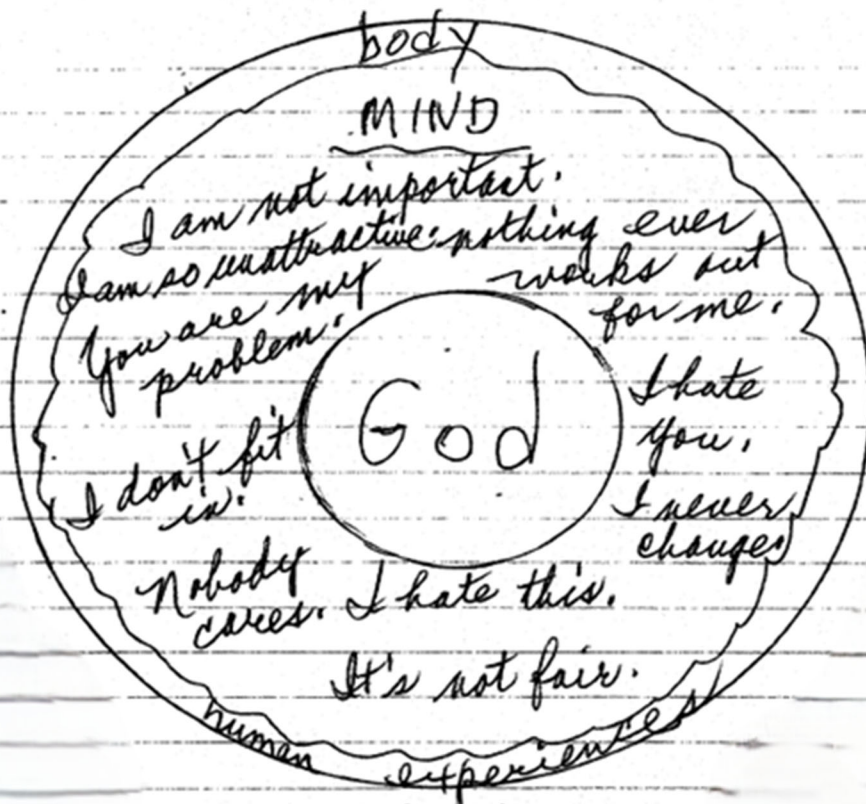 body
MIND
I am not important.
I am so unattractive. nothing ever
works out
for me.
You are my
problem.
God
I hate
you.
I don't fit
in.
I never
change.
Nobody
cares.
I hate this.
It's not fair.
human experiences